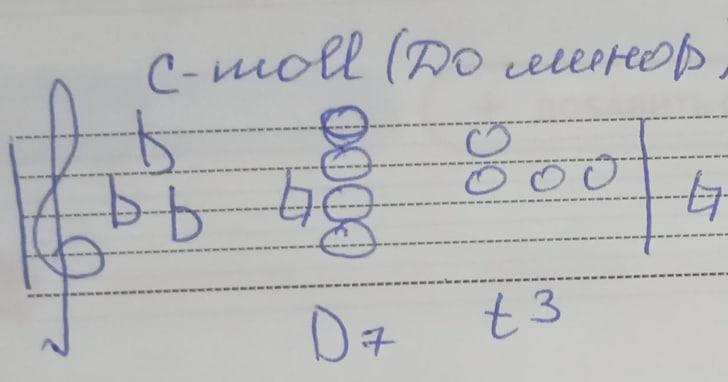 c-moll (До минор)
D7 t3